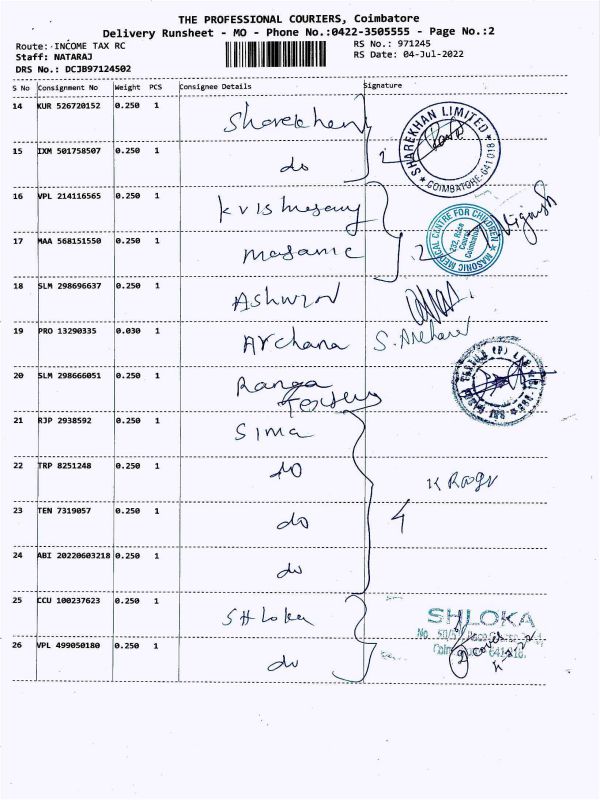 THE PROFESSIONAL COURIERS, Coimbatore
Delivery Runsheet - MO - Phone No.:0422-3505555 - Page No.:2
Route: INCOME TAX RC
RS No.: 971245
Staff: NATARAJ
RS Date: 04-Jul-2022
DRS No.: DCJB97124502
S No Consignment No Weight PCS Consignee Details Signature
14 KUR 526720152 0.250 1 Sharekhan
SHAREKHAN LIMITED
COIMBATORE-641 018
15 IXM 501758507 0.250 1 do 2
16 VPL 214116565 0.250 1
MASONIC MEDICAL CENTRE FOR CHILDREN
232, Race
Course
Coimbatore
17 MAA 568151550 0.250 1 masonic 2
18 SLM 298696637 0.250 1 Ashwin
19 PRO 13290335 0.030 1 Archana S. Archana
20 SLM 298666051 0.250 1 Ranga
21 RJP 2938592 0.250 1 Sima
22 TRP 8251248 0.250 1 do
23 TEN 7319057 0.250 1 do 4
24 ABI 20220603218 0.250 1 do
25 CCU 100237623 0.250 1 Shloka
SHLOKA
26 VPL 499050180 0.250 1 do